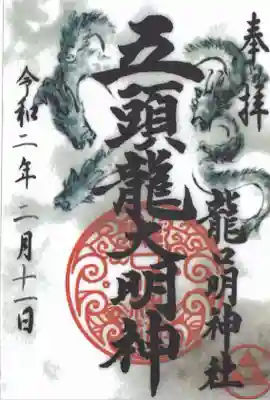 奉拝
五頭龍大明神
龍口明神社
令和二年 二月十一日